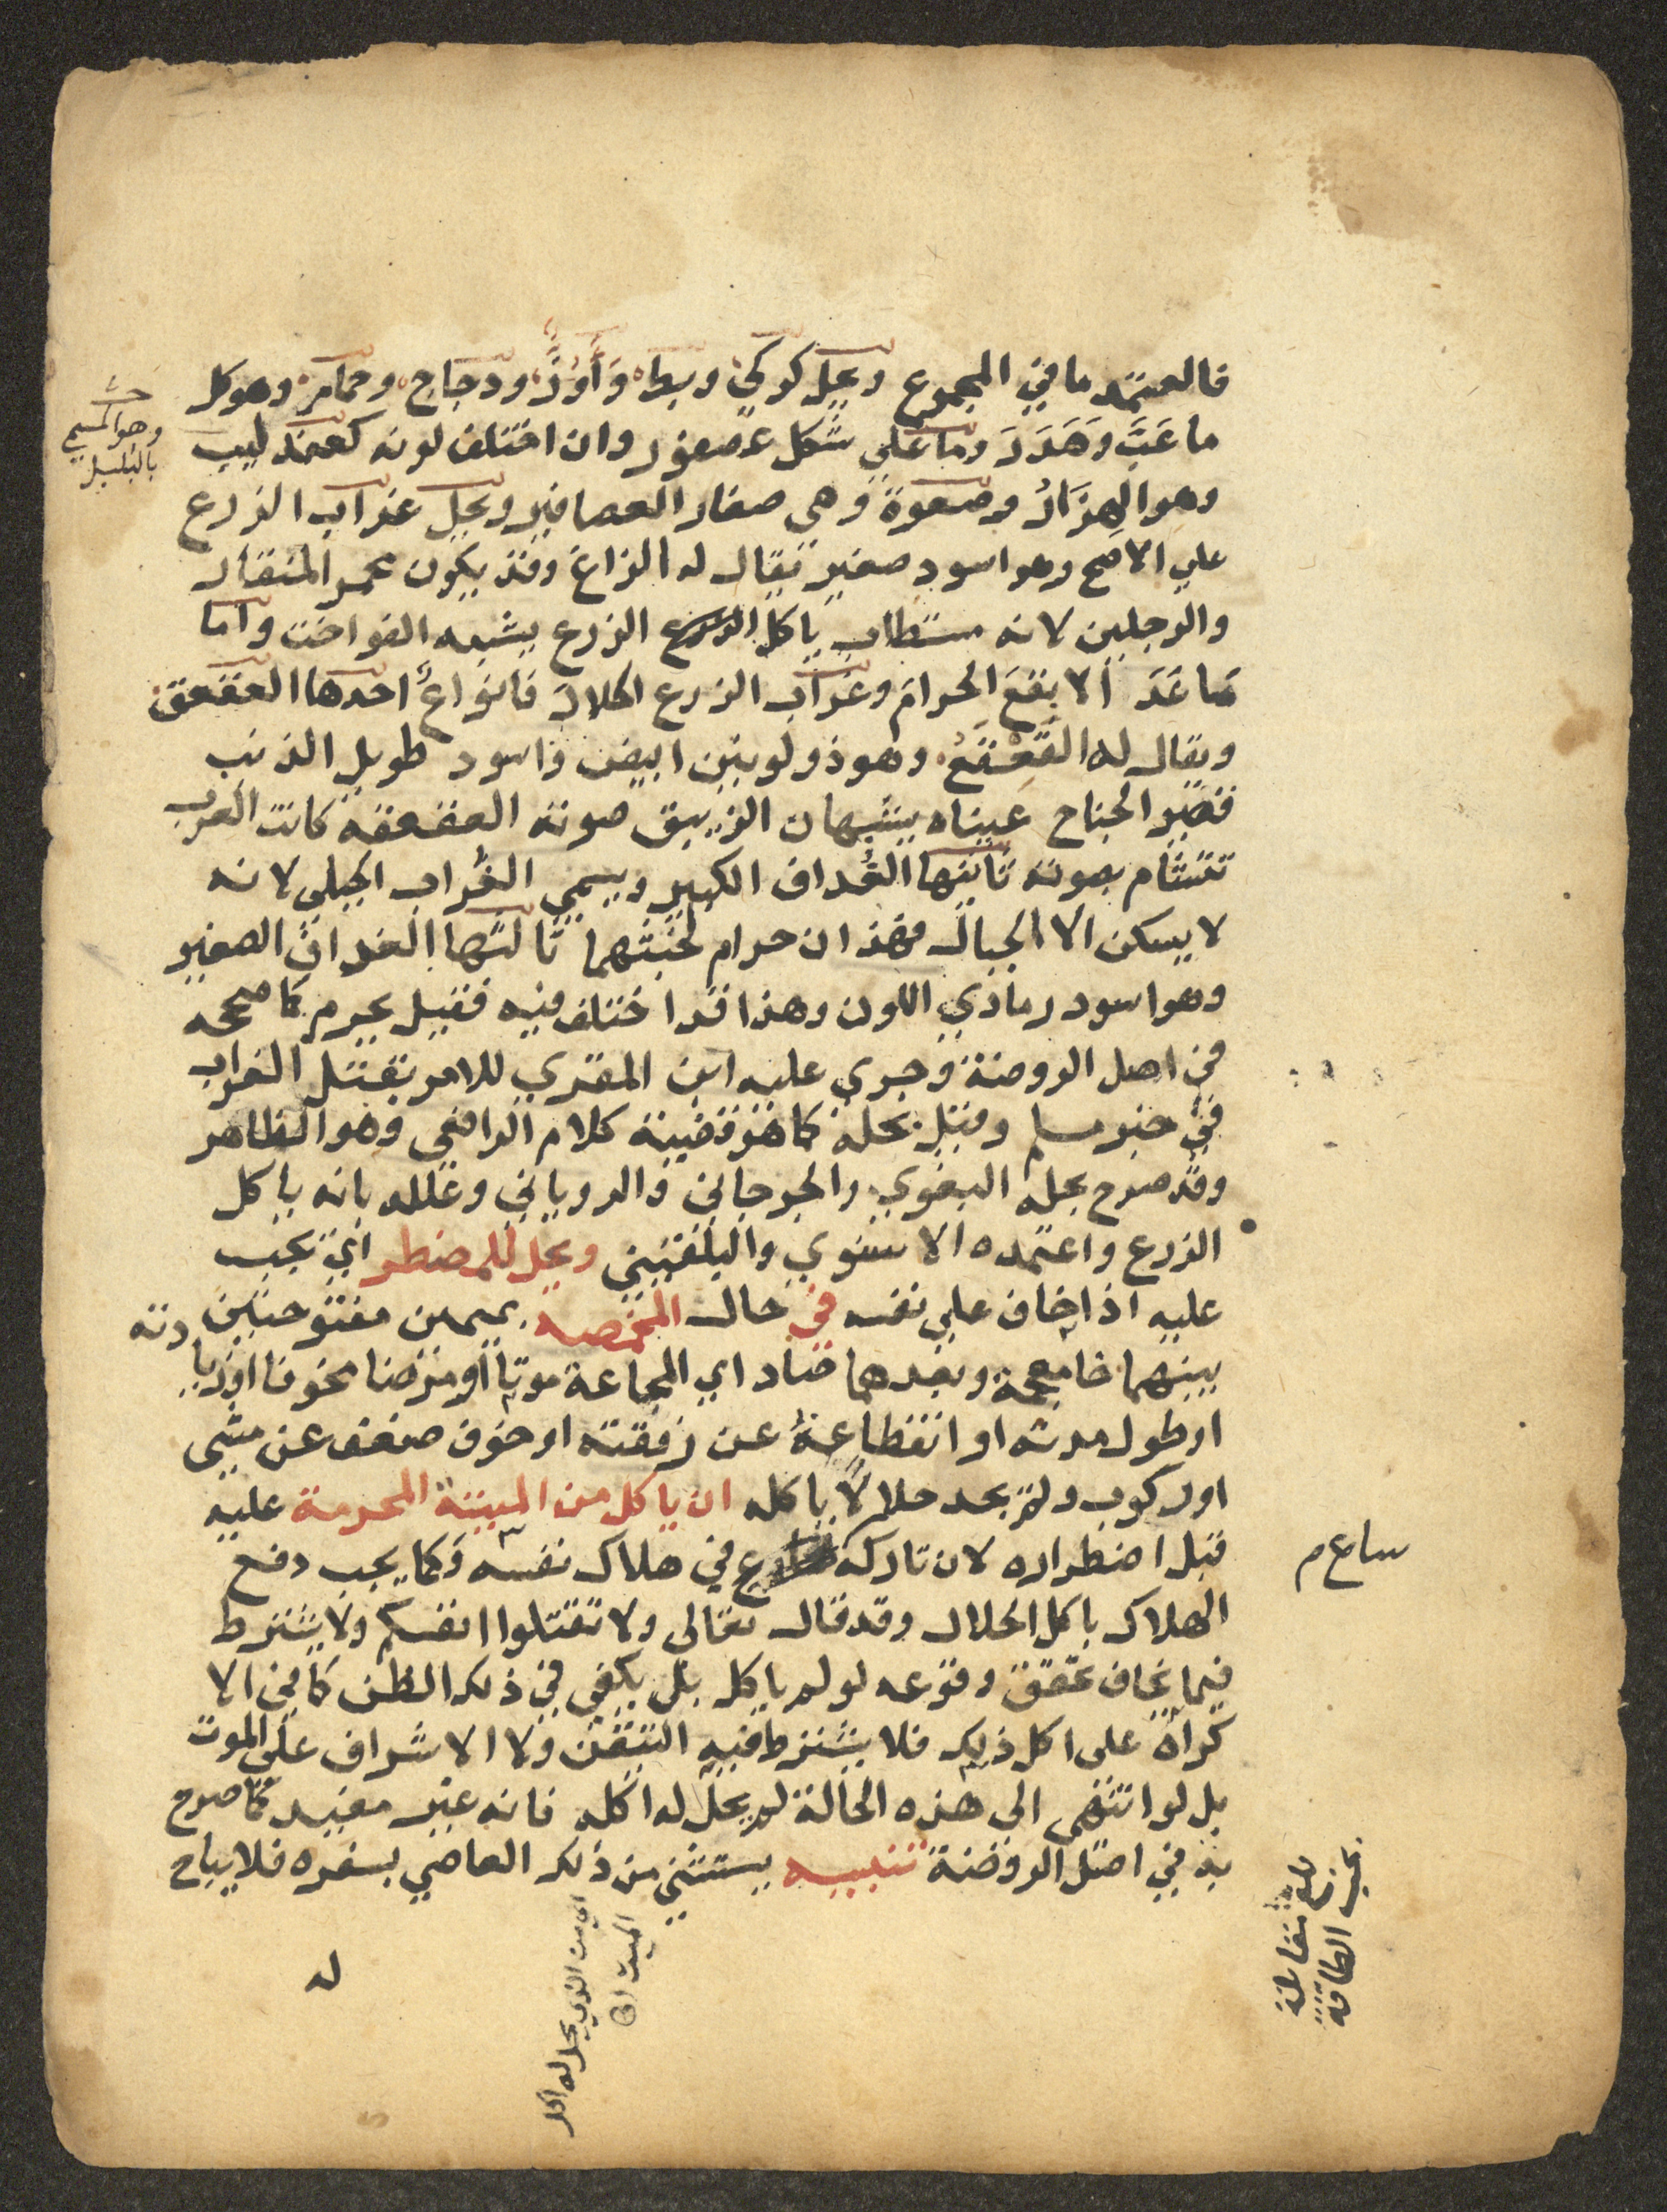 فالمعتمد ما في المجموع ويحل كركي وبط وَأَوِزُّ ودجاج وحمام وهو كل
ما عَبَّ وَهَدَرَ وما على شكل عصفور وان اختلف لونه كعندليب
وهو الهزار وصعوة وهي صغار العصافير ويحل غراب الزرع
على الاصح وهو اسود صغير يقال له الزاغ وقد يكون محمر المنقار
والرجلين لانه مستطاب ياكل الزرع يشبه الفواخت واما
ما عَدَ الابقع الحرام وغراب الزرع الحلال فانواع احدها العقعق
ويقال له القعقع وهو ذو لونين ابيض واسود طويل الذنب
قصير الجناح عيناه يشبهان الزيبق صوته العقعقه كانت العرب
تتشام بصوته ثانيها الغُداف الكبير ويسمى الغراب الجبلي لانه
لا يسكن الا الجبال فهذان حرام لخبثهما ثالثها الغداف الصغير
وهو اسود رمادي اللون وهذا قد اختلف فيه فقيل يحرم كما صححه
في اصل الروضة وجرى عليه ابن المقري للامر بقتل الغراب
في خبر مسلم وقيل بحله كما هو قضية كلام الرافعي وهو الظاهر
وقد صرح بحله البغوي والجرجاني والروياني وعلله بانه ياكل
الزرع واعتمده الاسنوي والبلقيني ويحل للمضطر اي يجب
عليه اذا خاف على نفسه في حال المخمصه بميمين مفتوحتين
بينهما خا معجمة وبعدهما صاد اي المجاعة موتا او مرضا مخوفا او زيادته
او طول مدته او انقطاعه عن رفقته او خوف ضعف عن مشي
او ركوب ولم يجد حلالاً ياكله ان ياكل من الميتة المحرمة عليه
قبل اضطراره لان تاركه في هلاك نفسه وكما يجب دفع
الهلاك باكل الحلال وقد قال تعالى ولا تقتلوا انفسكم ولا يشترط
فيما يخاف تحقق وقوعه لو لم ياكل بل يكفي في ذلك الظن كما في الا
كراه على اكل ذلك فلا يشترط فيه التيقن ولا الاشراف على الموت
بل لو انتهى الى هذه الحالة لم يحل له اكله فانه غير مفيد كما صرح
به في اصل الروضة تنبيه يستثنى من ذلك العاصي بسفره فلا يباح
له
وهو المسمى
بالبلبل
ساع م
اي من الذي يحل له اكل